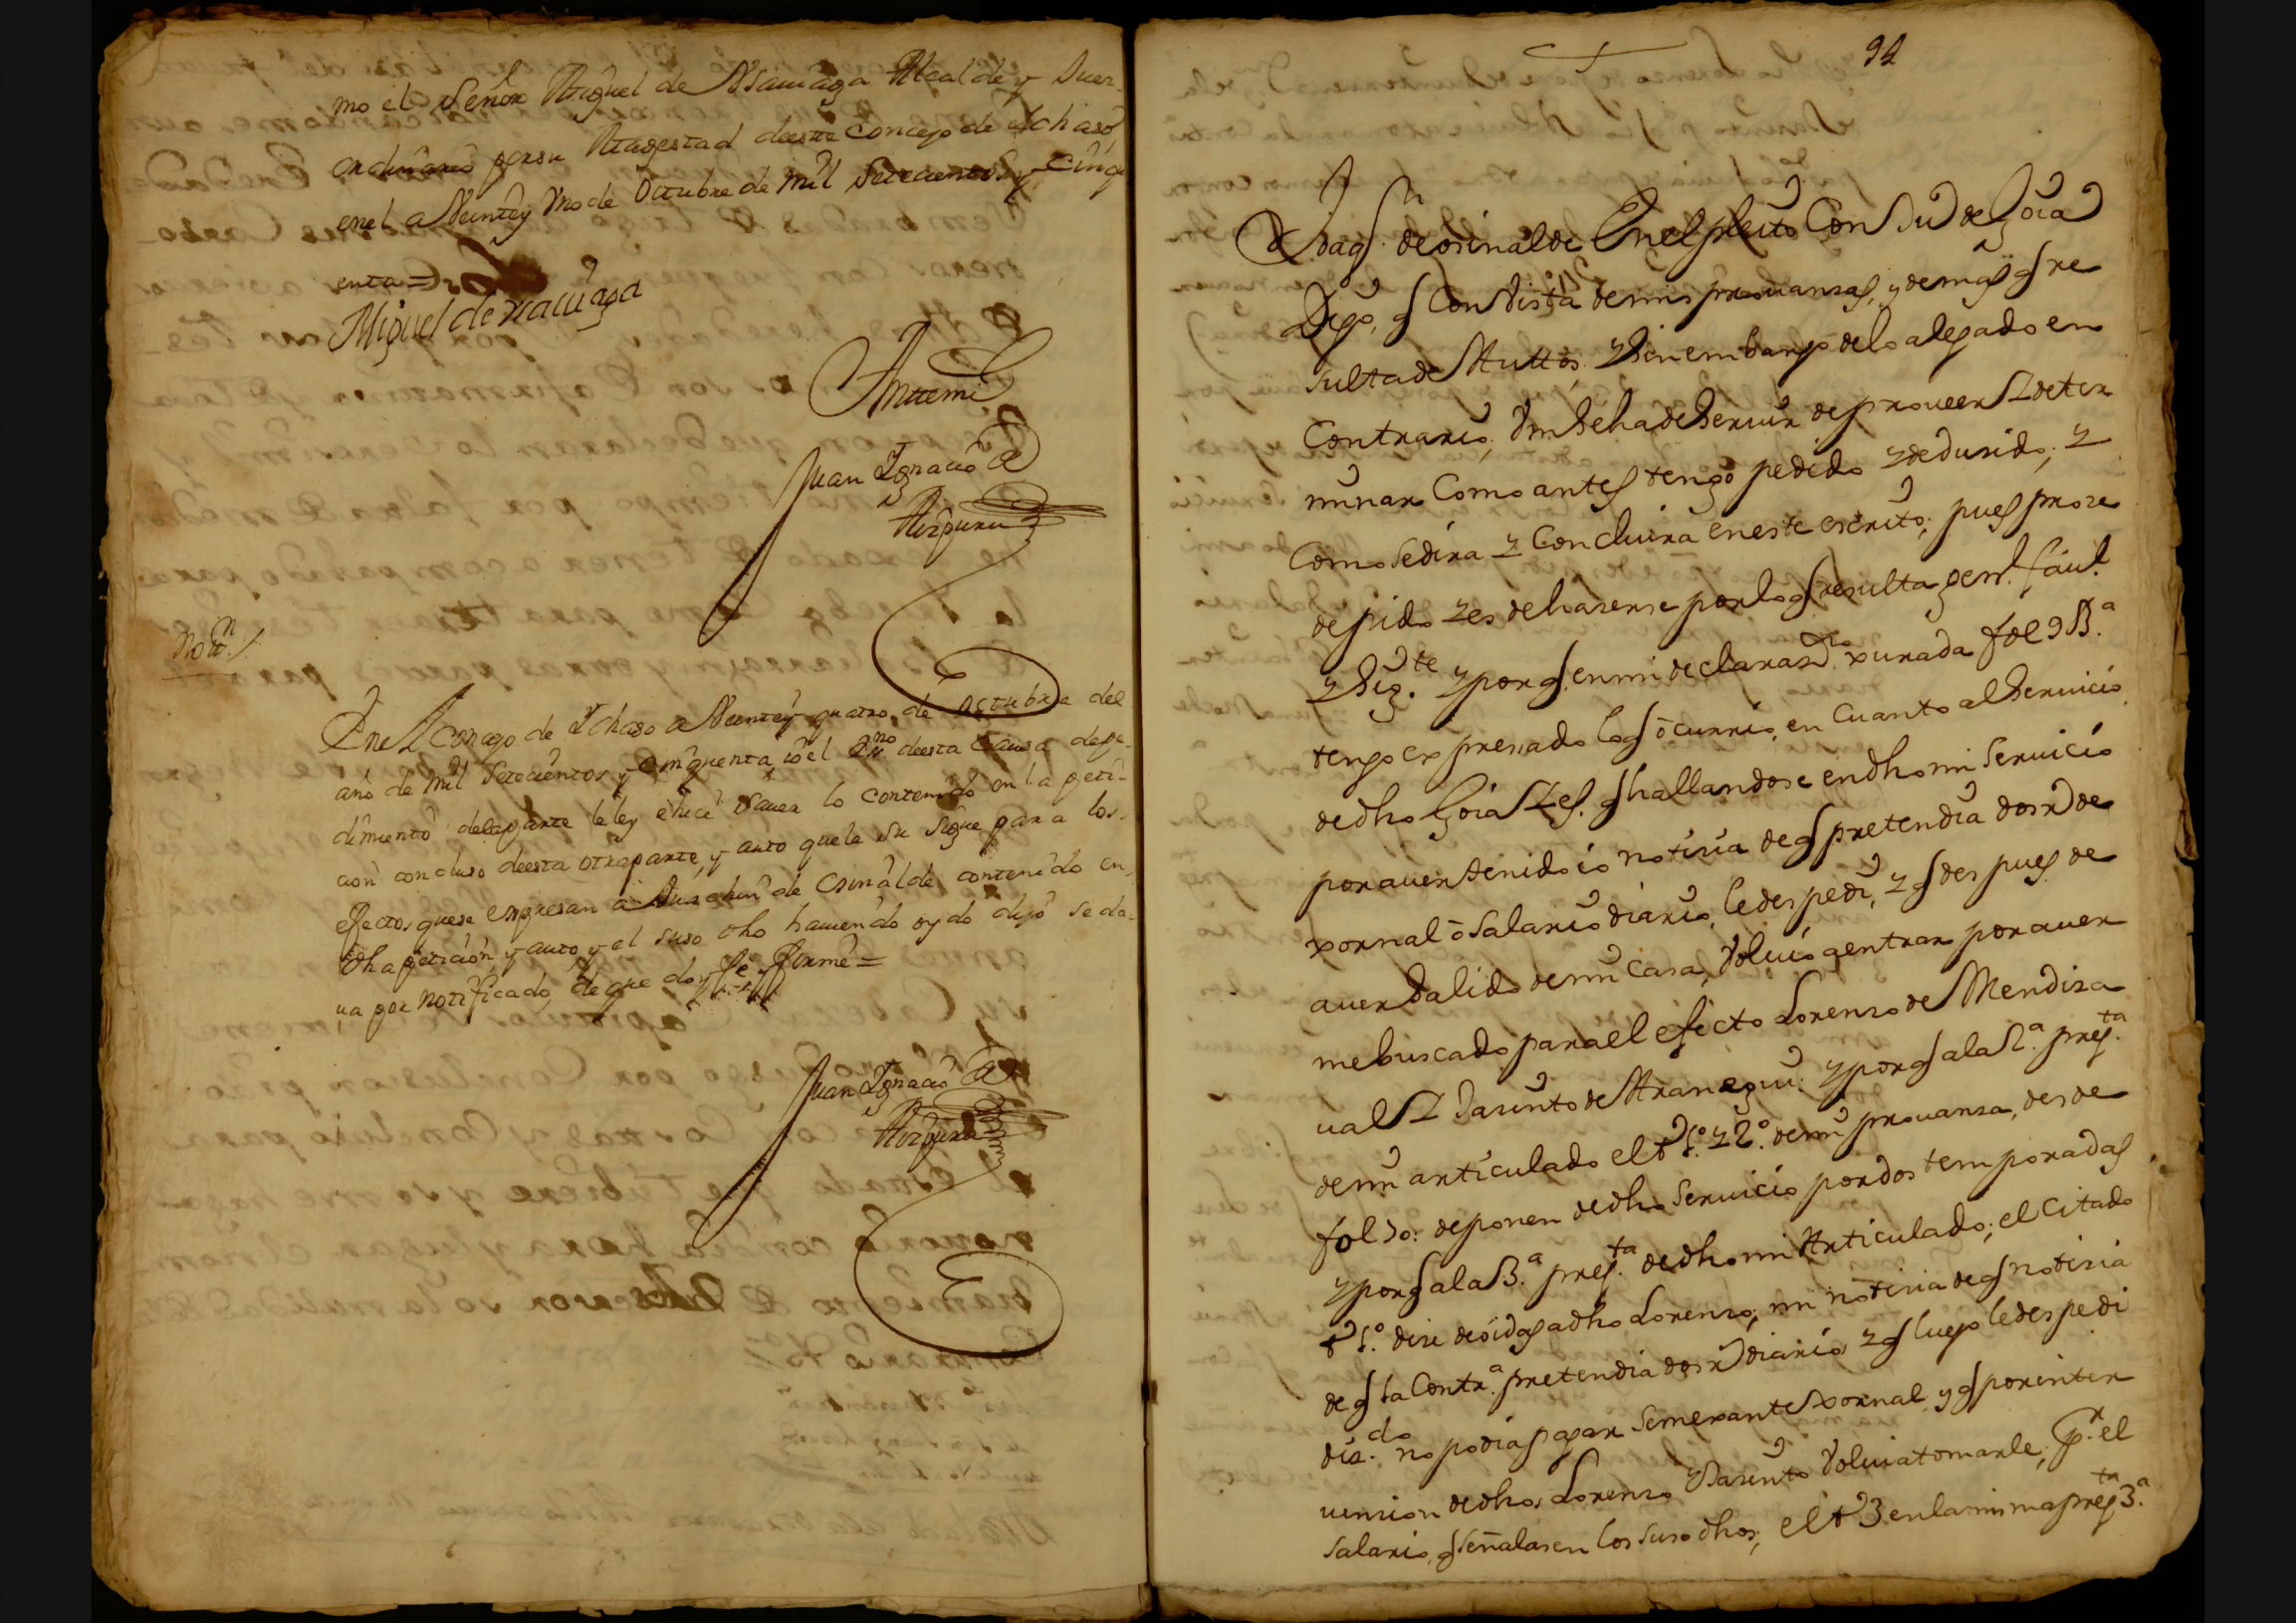 mo el Señor Miguel de Alsauiaga Alcalde y Juez
ordinario por su Magestad deeste concejo de Ichaso
en el a Veinte y Uno de Octubre de mil Setecientos y Cinqu
enta =
Miguel de
Anttemi
Juan Ignacio de
Aizpuru
Not.n
En el Conzejo de Ichaso a Veinte y quatro de octubre del
año de mil Setecientos y Cinquenta io el Sn.no deesta Causa de pe-
dimiento dela parte le ley e hice sauer lo contenido en la peti-
cion concluso deesta otra parte, y auto que le su sigue para los
efectos que se expresan a de Osinalde contenido en
dha peticion, y auto y el suso dho hauiendo oydo dijo se da-
ua por notificado, de que doy fe y firme =
Juan Ignacio de
Aizpuru
92
de Osinalde En el pleito Con Ju de Goia
Digo, q Con Vista de mis prouanzas, y demas q re
sulta de Auttos, y Sin embargo delo alegado en
Contrario, Vm Se ha de Seruir de proueer y deter
minar Como antes tengo pedido y dedusido; y
Como se dira y Concluira en este escrito; pues proze
de pido y es de haserse por lo q resulta gen.l fau.l
y Sig.te y por q en mi declaraz.on xurada fol 9 B.a
tengo expresado lo q ocurrio, en Cuanto al Seruicio
de dho Goia y es. q hallandose en dho mi Seruicio
por auer tenido io notisia de q pretendia dos r.s de
xornal o salario diario, le despedi, y q despues de
auer Salido de mi Casa, Voluio a entrar por auer
me buscado para el efecto Lorenzo de Mendiza
ual y Jasinto de Aranegui: y por q a la 2.a preg.ta
de mi articulado el tt.o 1.o y 2.o de mi prouanza, desde
fol 30: deponen de dho Seruicio por dos temporadas
y por q a la 3.a preg.ta de dho mi Articulado; el Citado
tt.o 1.o dise de oidas a dho Lorenzo, mi notisia de q notisia
de q la Contr.a pretendia dos r.s diarios y q luego le despedi
diz.do no podia pagar semexante xornal, y q por inter
uension de dhos Lorenzo y Jasinto Volui a tomarle, p.r el
salario, q señalasen los suso dhos; el tt.o 3 en la misma preg.ta 3.a